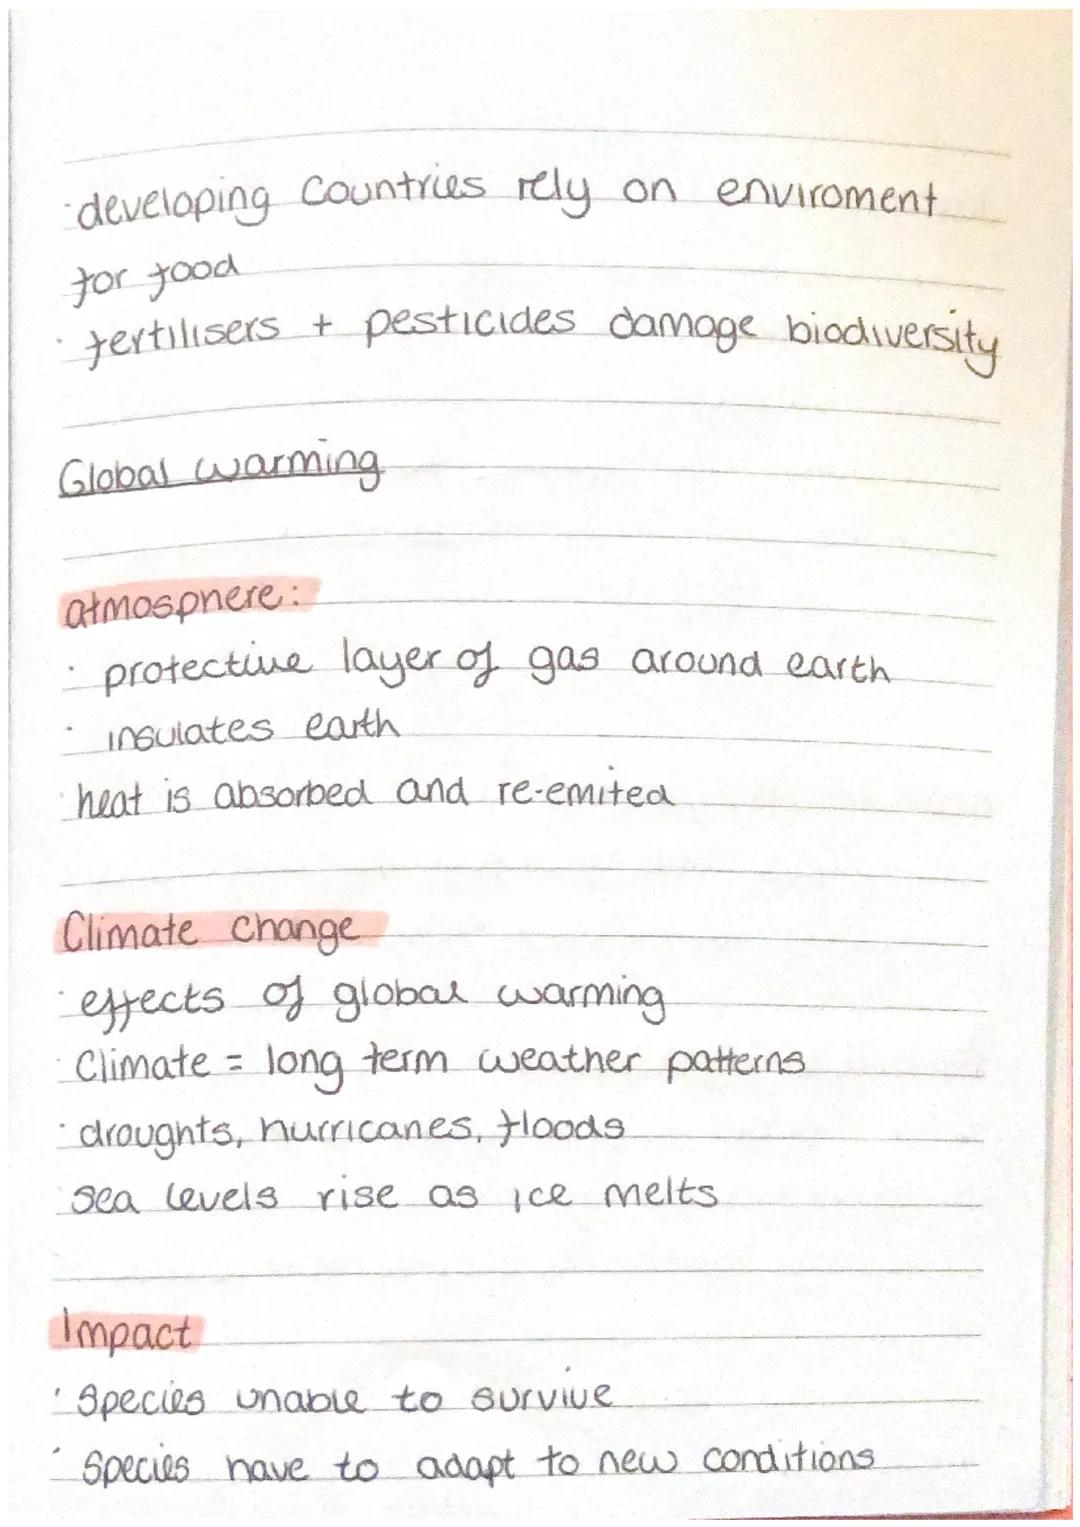 ·developing Countries rely on enviroment
for food
· fertilisers + pesticides damage biodiversity
Global warming
atmosphere:
· protective layer of gas around earth
· insulates earth
·heat is absorbed and re-emited
Climate Change
·effects of global warming
·Climate = long term weather patterns
·droughts, hurricanes, floods
·sea levels rise as ice melts
Impact
·Species unable to survive
·Species have to adapt to new conditions